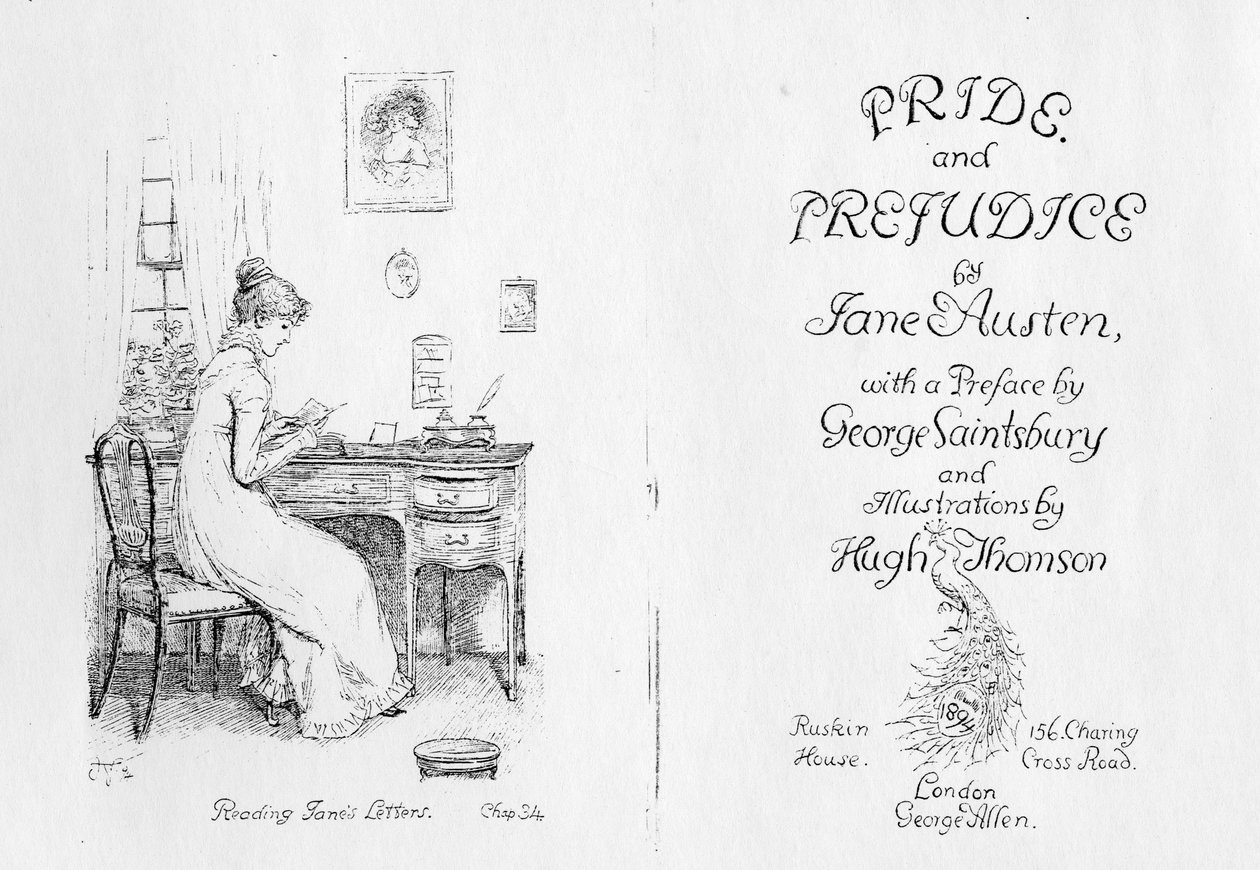 Reading Jane's Letters. Chap 34.
PRIDE.
and
PREJUDICE
by
Jane Austen,
with a Preface by
George Saintsbury
and
Illustrations by
Hugh Thomson
1894
Ruskin House.
156. Charing Cross Road.
London
George Allen.